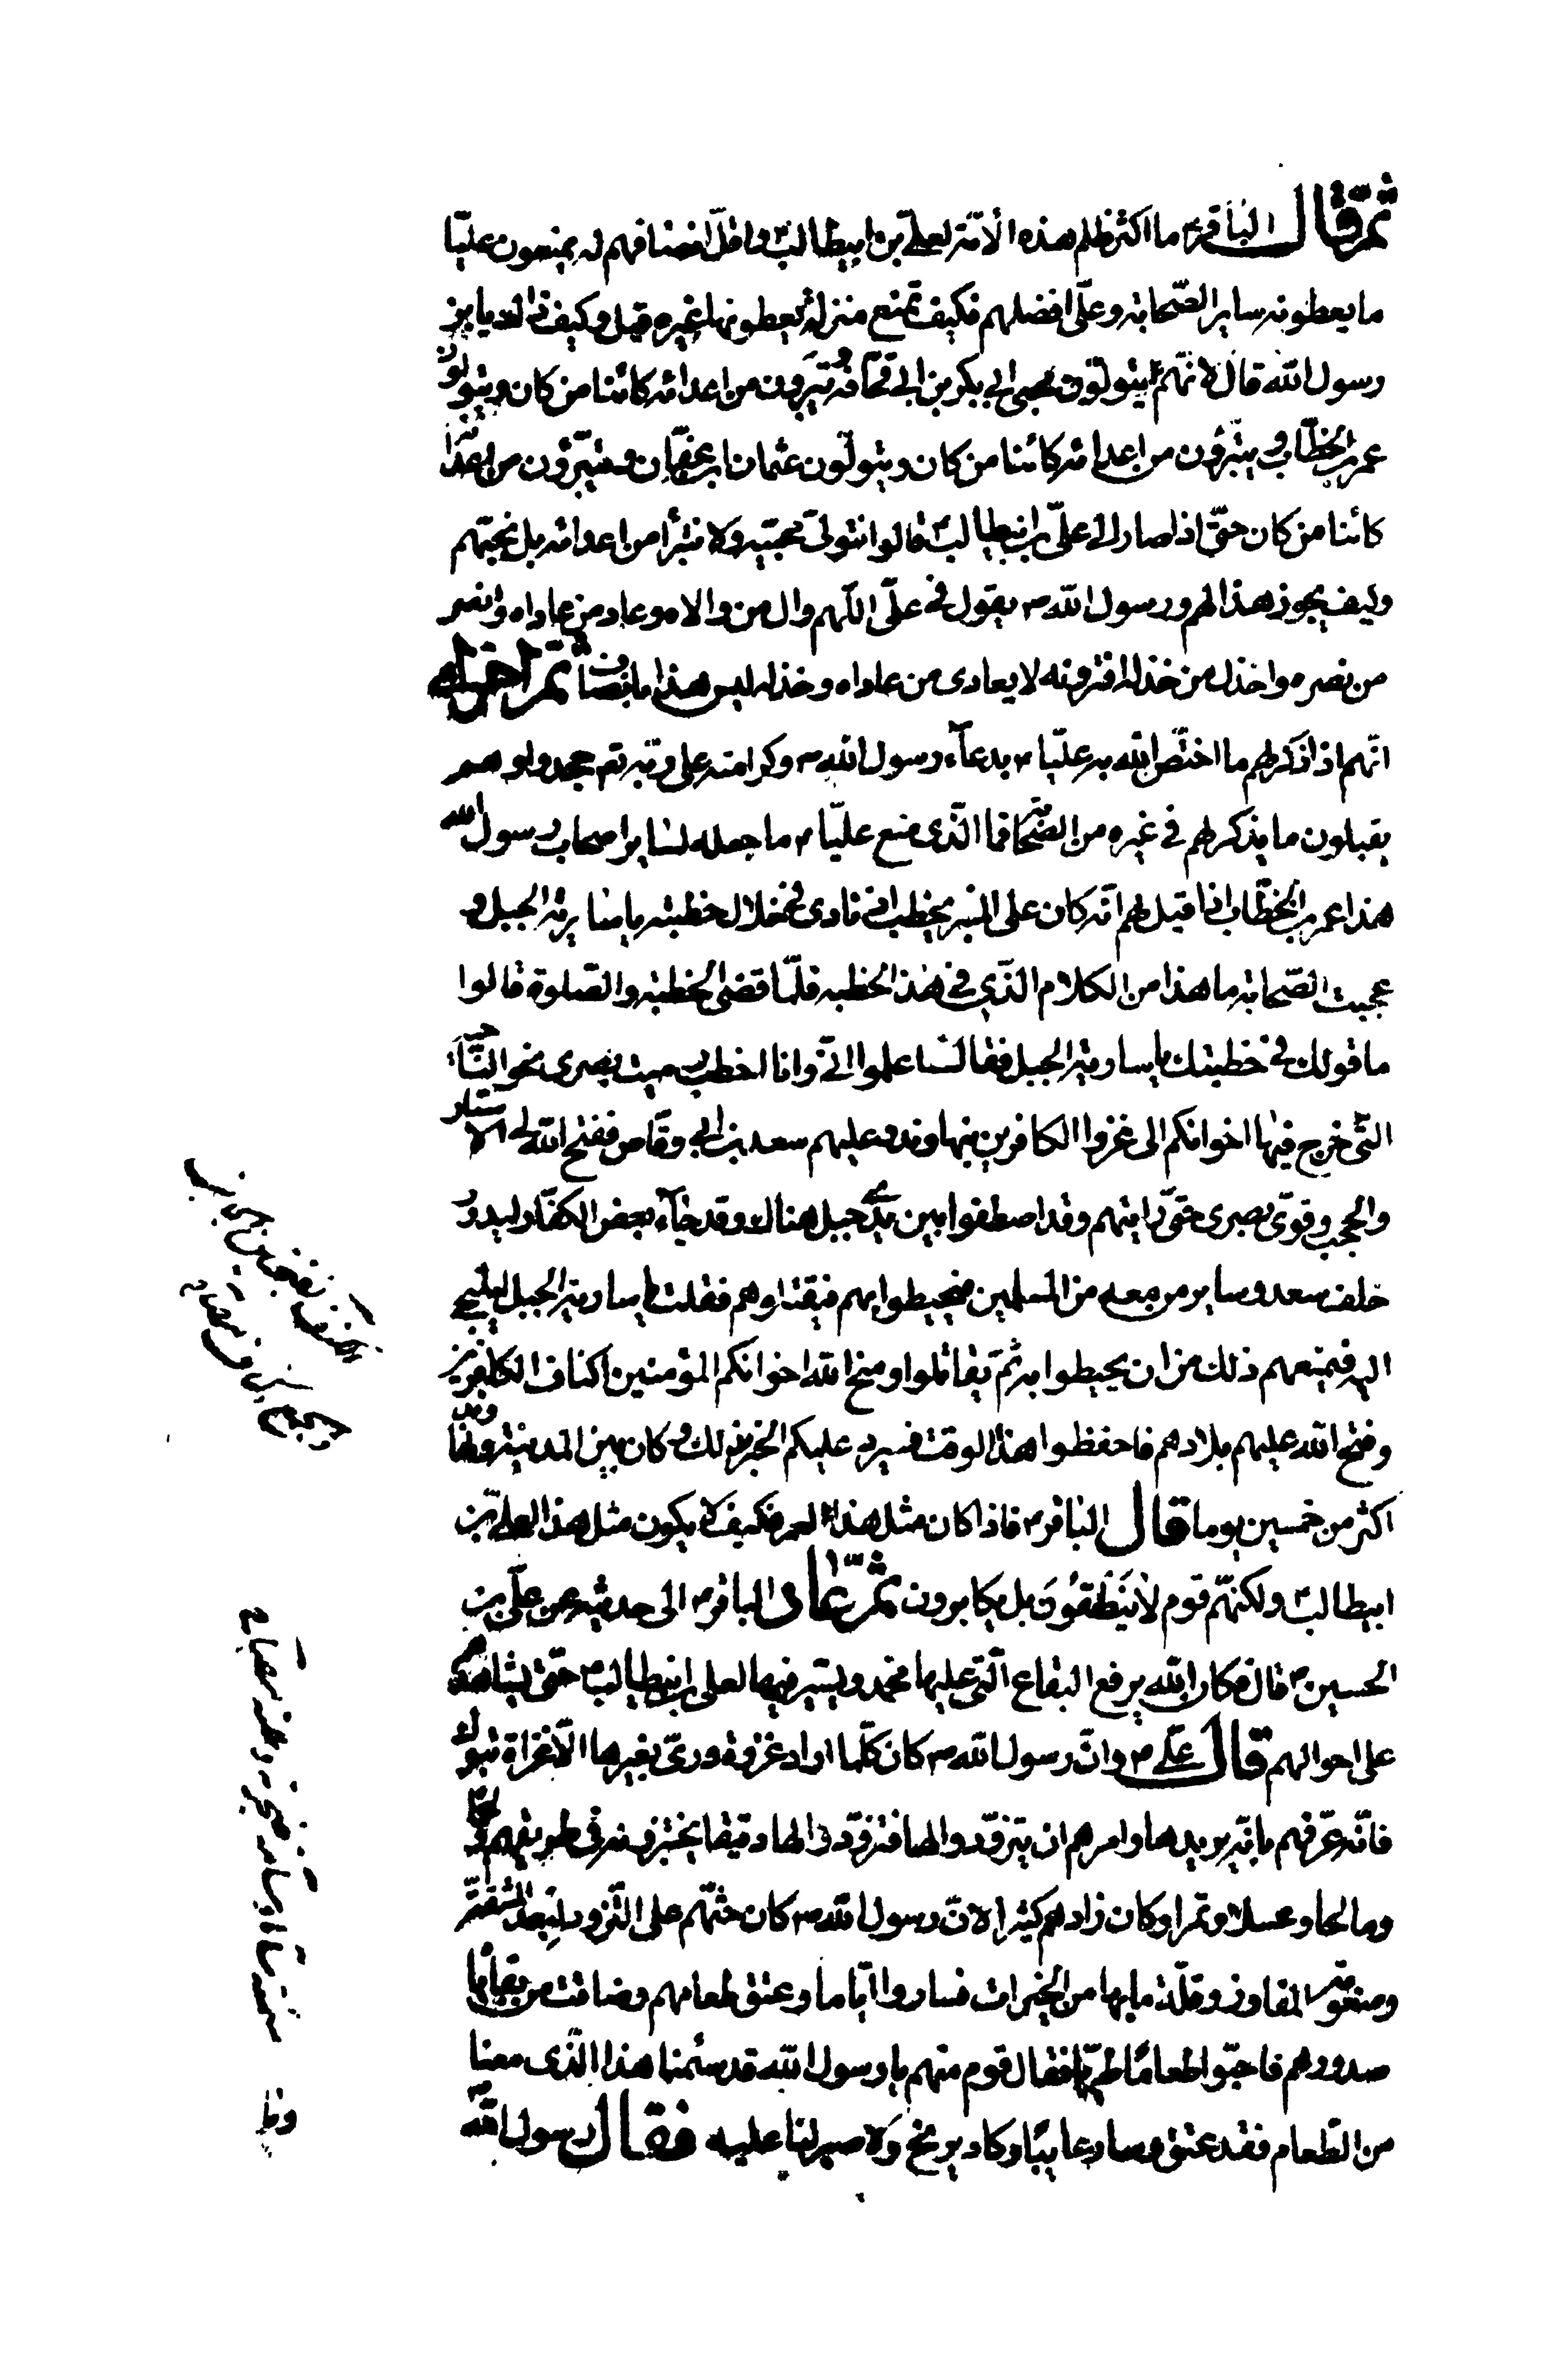 ثمّ قال الباقر ع ما اكثر ظلم هذه الأمّة لعليّ بن ابيطالب ع واقلّ انصافهم له يمنعون عليّا
ما يعطونه ساير الصّحابة وعليّ افضلهم فكيف تمنع منزلة يعطونها غيره قيل وكيف ذاك يابن
رسول الله قال لانّهم يتولّون محبي ابي بكر بن ابي قحافة ويتبرّون من اعدائه كائنا من كان ويتولون
عمر بن الخطّاب ويتبرّؤن من اعدائه كائنا من كان ويتولّون عثمان ابن عفّان ويتبرّؤن من اعدائه
كائنا من كان حتّى اذا صار الى عليّ بن ابيطالب ع قالوا نتولّى محبّيه ولا نتبرأ من اعدائه بل نحبّهم
وكيف يجوز هذا لهم ورسول الله ص يقول في عليّ اللّهم وال من والاه وعاد من عاداه وانصر
من نصره واخذل من خذله افترونه لا يعادى من عاداه وخذله ليس هذا بانصاف ثمّ اخرى
انّهم اذا ذكر لهم ما اختصّ الله به عليّا ع بدعآء رسول الله ص وكرامته على ربّه تع جحدوه وهم
يقبلون ما يذكر لهم في غيره من الصّحابة فما الّذى منع عليّا ع ما جعله لساير اصحاب رسول الله
هذا عمر بن الخطّاب اذا قيل لهم انّه كان على المنبر يخطب اذ نادى في خلال خطبته يا سارية الجبل و
عجبت الصّحابة ما هذا من الكلام الّذي في هذه الخطبة فلمّا قضى الخطبة والصّلوة قالوا
ما قولك في خطبتك يا سارية الجبل فقال اعلموا انّي وانا اخطب رميت ببصرى نحو النّاحية
التّى خرج فيها اخوانكم الى غزوا الكافرين بنهاوند وعليهم سعد بن ابي وقّاص ففتح الله لي الاستار
والحجب وقوّى بصرى حتّى رايتهم وقد اصطفوا بين يدي جبل هناك وقد جآء بعض الكفّار ليدور
خلف سعد وساير من معه من المسلمين فيحيطوا بهم فيقتلوهم فقلت يا سارية الجبل ليلتجي
اليه فيمنعهم ذلك من ان يحيطوا به ثمّ يقاتلوا ومنح الله اخوانكم المؤمنين اكناف الكافرين
وفتح الله عليهم بلادهم فاحفظوا هذا الوقت فسيرد عليكم الخبر بذلك وكان بين المدينة ونهاوند
اكثر من خمسين يوما قال الباقر ع فاذا كان مثل هذا لعمر فكيف لا يكون مثل هذا لعليّ بن
ابيطالب ع ولكنّهم قوم لا ينصفون بل يكابرون ثمّ عاد الباقر ع الى حديثه عن عليّ بن
الحسين ع قال فكان الله يرفع البقاع الّتي عليها محمد ويسير فيها لعلي بن ابيطالب ع حتّى يشاهدهم
على احوالهم قال عليّ ع وانّ رسول الله ص كان كلّما اراد غزوة ورىّ بغيرها الّا غزاة تبوك
فانّه عرّفهم بانّه يريدها وامرهم ان يتزوّدوا لها فتزوّدوا لها دقيقا يختبزونه في طريقهم ولحما
ومالحا وعسلا وتمرا وكان زادهم كثيرا لانّ رسول الله ص كان حثّهم على التّزود لبعد الشّقّة
وصعوبة المفاوز وقلّة ما بها من الخيرات فساروا ايّاما وعتق طعامهم وضاقت من بقاياه
صدورهم فاحبّوا طعامًا طريّا فقال قوم منهم يا رسول الله قد سئمنا هذا الّذى معنا
من الطّعام فقد عتق وصار عايبًا وكاد يريح ولا صبر لنا عليه فقال رسول الله ص